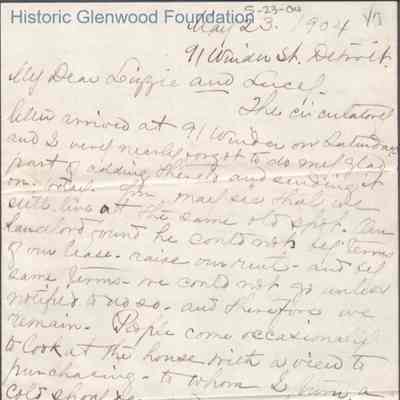 Historic Glenwood Foundation
5-23-04
May 23. 1904
91 Winder St. Detroit.
My Dear Lizzie and Lucy.
The circulator
arrived at 91 Winder on Saturday
and I very nearly forgot to do my glad
part of adding thereto and sending it
on
still live at the same old spot. Our
landlord found he could not
of our lease - raise our rent - and
same terms - we could not go unless
notified to do so - and therefore we
remain. People come occasionally
to look at the house with a view to
purchasing - to whom I turn a
cold shoulder